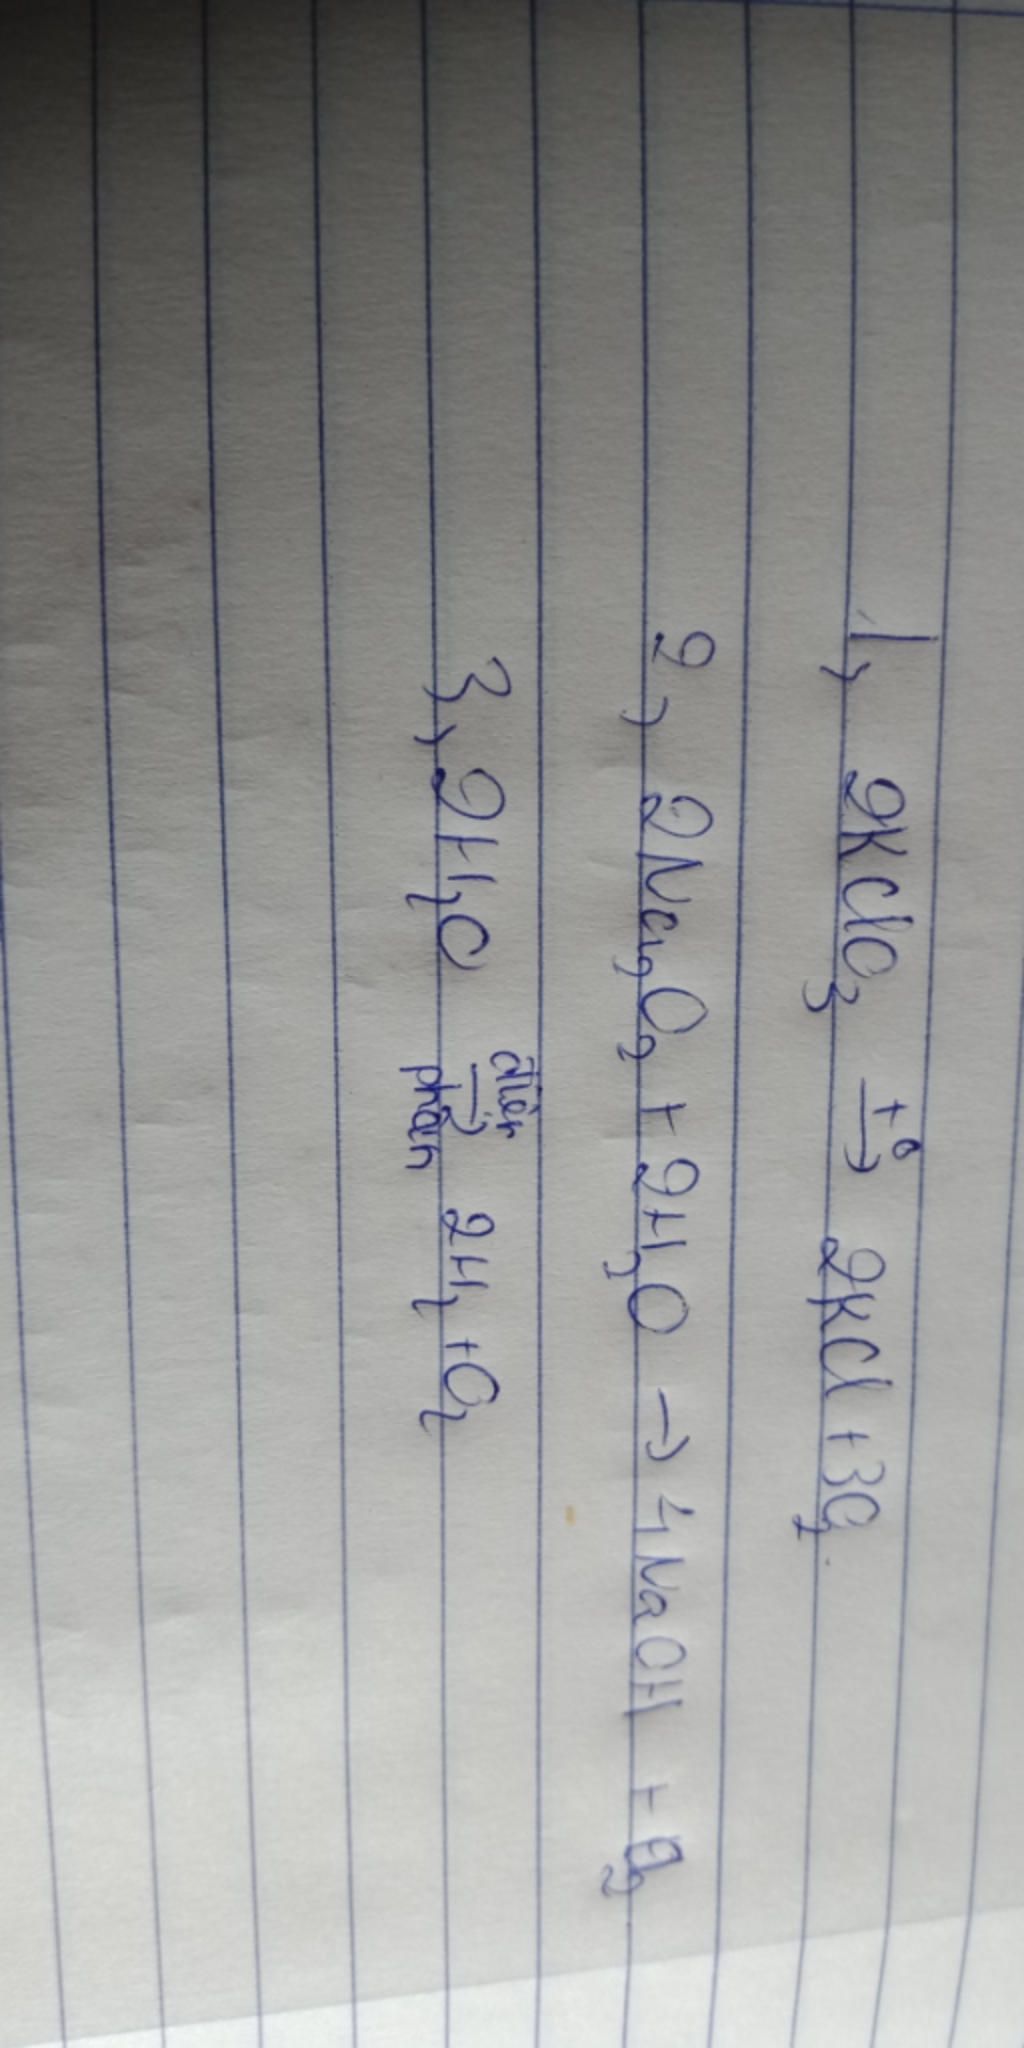 1, 2KClO₃ →(t°) 2KCl + 3O₂.
2, 2Na₂O₂ + 2H₂O → 4NaOH + O₂
3, 2H₂O →(điện phân) 2H₂ + O₂